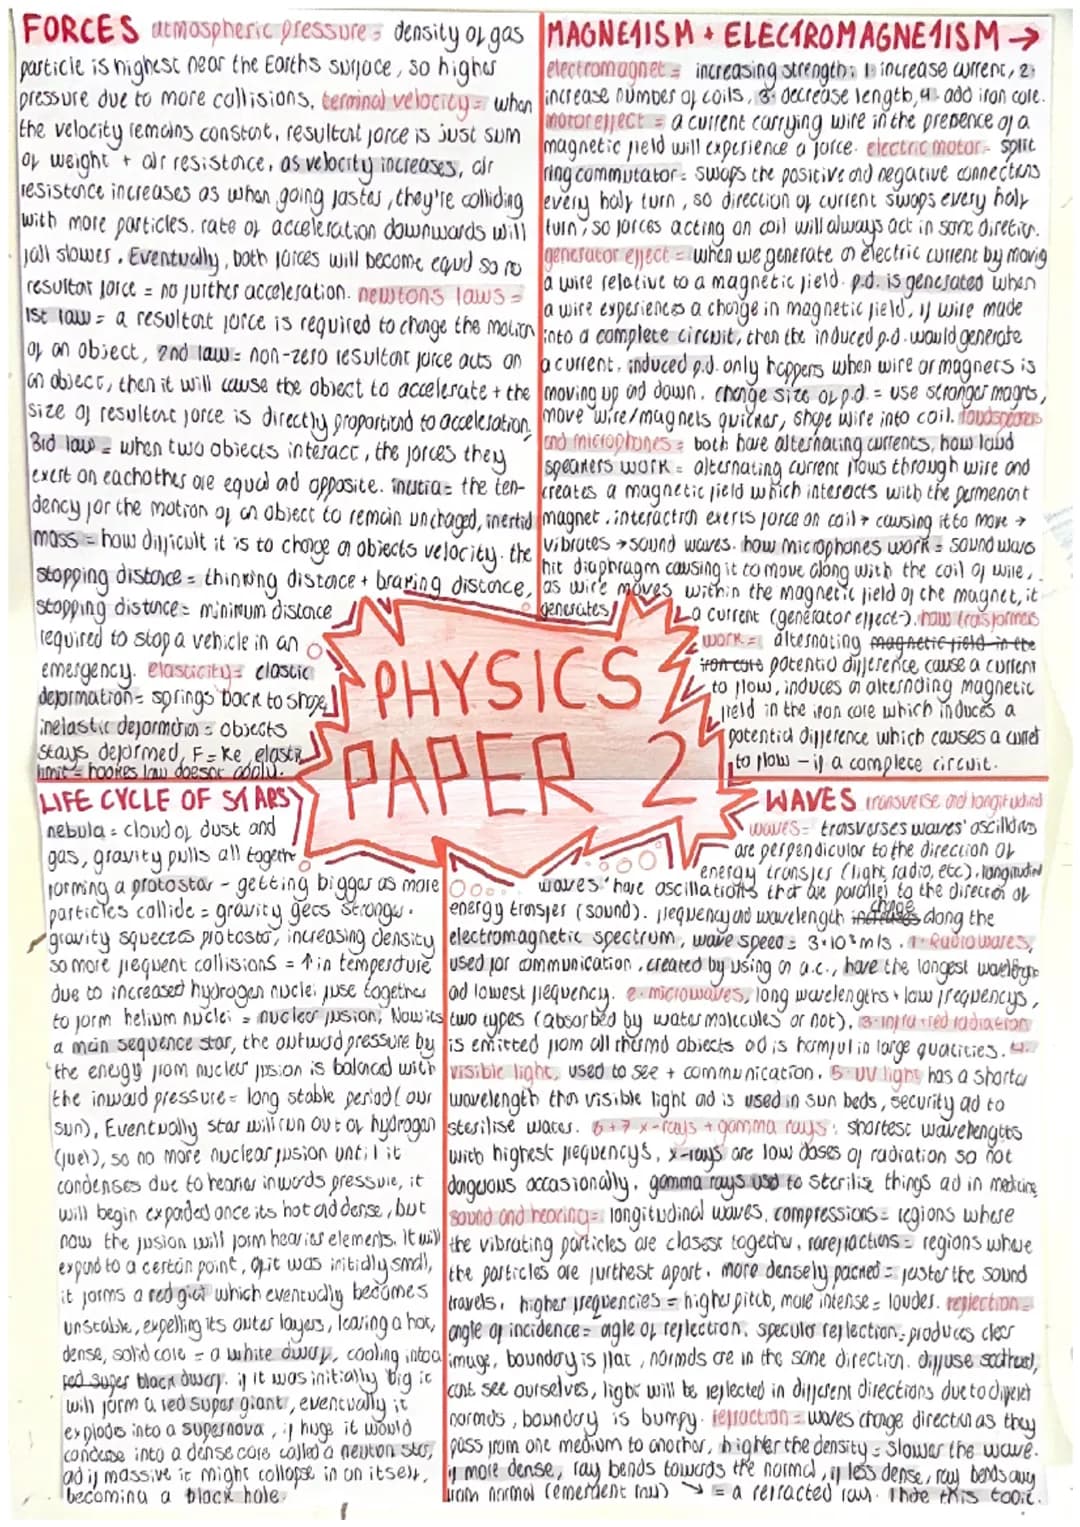 FORCES atmospheric pressure = density of gas
particle is highest near the Earths surface, so higher
pressure due to more collisions. terminal velocity = when
the velocity remains constant, resultant force is just sum
of weight + air resistance, as velocity increases, air
resistance increases as when going faster, they're colliding
with more particles. rate of acceleration downwards will
fall slower. Eventually, both forces will become equal so no
resultant force = no further acceleration. newtons laws =
1st law = a resultant force is required to change the motion
of an object, 2nd law = non-zero resultant force acts on
an object, then it will cause the object to accelerate + the
size of resultant force is directly proportional to acceleration.
3rd law = when two objects interact, the forces they
exert on eachother are equal and opposite. inertia = the ten-
dency for the motion of an object to remain unchaged, inertial
mass = how difficult it is to change an objects velocity. the
stopping distance = thinking distance + braking distance,
stopping distance = minimum distance
required to stop a vehicle in an
emergency. elasticity = elastic
deformation = springs back to shape,
inelastic deformation = objects
stays deformed, F = Ke, elastic
limit = hookes law doesnt apply.
MAGNETISM + ELECTROMAGNETISM →
electromagnet = increasing strength: 1· increase current, 2·
increase number of coils, 3· decrease length, 4· add iron core.
motor effect = a current carrying wire in the presence of a
magnetic field will experience a force. electric motor = split
ring commutator = swaps the positive and negative connections
every half turn, so direction of current swaps every half
turn, so forces acting on coil will always act in same direction.
generator effect = when we generate an electric current by moving
a wire relative to a magnetic field. p.d. is generated when
a wire experiences a change in magnetic field, if wire made
into a complete circuit, then the induced p.d. would generate
a current. induced p.d. only happens when wire or magnets is
moving up and down. change size of p.d. = use stronger magnets,
move wire/magnets quicker, shape wire into coil. loudspeakers
and microphones = both have alternating currents, how loud
speakers work = alternating current flows through wire and
creates a magnetic field which interacts with the permenant
magnet. interaction exerts force on coil → causing it to move →
vibrates → sound waves. how microphones work = sound waves
hit diaphragm causing it to move along with the coil of wire,
as wire moves within the magnetic field of the magnet, it
generates a current (generator effect). how transformers
work = alternating magnetic field in the
iron core potential difference cause a current
to flow, induces an alternating magnetic
field in the iron core which induces a
potential difference which causes a current
to flow - if a complete circuit.
PHYSICS
PAPER 2
LIFE CYCLE OF STARS
nebula = cloud of dust and
gas, gravity pulls all together
forming a protostar - getting bigger as more
particles collide = gravity gets stronger.
gravity squeezes protostar, increasing density
so more frequent collisions = ↑ in temperature
due to increased hydrogen nuclei fuse together
to form helium nuclei = nuclear fusion. Now its
a main sequence star, the outward pressure by
the energy from nuclear fusion is balanced with
the inward pressure = long stable period (our
sun), Eventually star will run out of hydrogen
(fuel), so no more nuclear fusion until it
condenses due to heavier inwards pressure, it
will begin expanded once its hot and dense, but
now the fusion will form heavier elements. It will
expand to a certain point, if it was initially small,
it forms a red giant which eventually becomes
unstable, expelling its outer layers, leaving a hot,
dense, solid core = a white dwarf, cooling into a
red super black dwarf. if it was initially big it
will form a red super giant, eventually it
explodes into a supernova, if huge it would
condense into a dense core called a neutron star,
and if massive it might collapse in on itself,
becoming a black hole.
WAVES transverse and longitudinal
waves = trasverses waves' oscillations
are perpendicular to the direction of
energy transfer (light, radio, etc). longitudinal
waves' have oscillations that are parallel to the direction of
energy transfer (sound). frequency and wavelength increases change along the
electromagnetic spectrum, wave speed = 3×10⁸ m/s. 1· Radio waves,
used for communication, created by using an a.c., have the longest wavelength
and lowest frequency. 2· microwaves, long wavelengths + low frequencys,
two types (absorbed by water molecules or not). 3· infra-red radiation
is emitted from all thermal objects and is harmful in large quatities. 4·
visible light, used to see + communication. 5· UV light has a shorter
wavelength than visible light and is used in sun beds, security and to
sterilise water. 6+7 x-rays + gamma rays: shortest wavelengths
with highest frequencys, x-rays are low doses of radiation so not
dangerous occasionally. gamma rays used to sterilise things and in medicine
sound and hearing = longitudinal waves. compressions = regions where
the vibrating particles are closest together, rarefractions = regions where
the particles are furthest apart. more densely packed = faster the sound
travels. higher frequencies = higher pitch, more intense = louder. reflection =
angle of incidence = angle of reflection. specular reflection = produces clear
image, boundary is flat, normals are in the same direction. diffuse scattered,
cant see ourselves, light will be reflected in different directions due to different
normals, boundary is bumpy. refraction = waves change direction as they
pass from one medium to another, higher the density = slower the wave.
if more dense, ray bends towards the normal, if less dense, ray bends away
from normal (emergent ray) → = a refracted ray. I hate this topic.